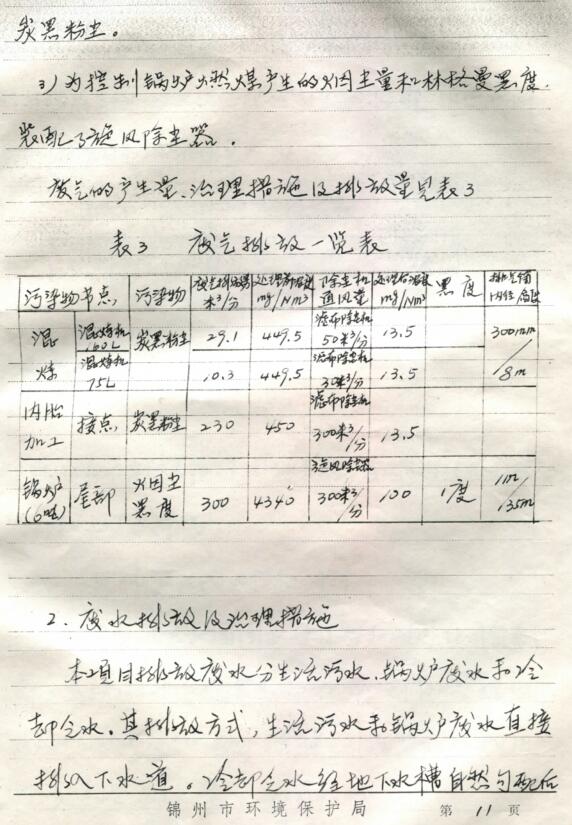 炭黑粉尘。
3)为控制锅炉燃煤产生的烟尘量和林格曼黑度.
装配了旋风除尘器.
废气的产生量、治理措施及排放量见表3
表3 废气排放一览表
污染物节点 污染物 废气排放量米³/分 处理前浓度mg/Nm³ 除尘机通风量 处理后浓度mg/Nm³ 黑度 排气筒内径 高度
混炼 混炼机160L 炭黑粉尘 29.1 449.5 滤布除尘机50米³/分 13.5 300mm/8m
混炼机75L 10.3 449.5 滤布除尘机30米³/分 13.5
内胎加工 接点 炭黑粉尘 230 450 滤布除尘机300米³/分 13.5
锅炉(6吨) 尾部 烟尘黑度 300 4340 旋风除尘器300米³/分 100 1度 1m/35m
2. 废水排放及治理措施
本项目排放废水分生活污水.锅炉废水和冷
却仓水.其排放方式,生活污水和锅炉废水直接
排入下水道。冷却仓水经地下水槽自然匀配后
锦州市环境保护局 第 11 页